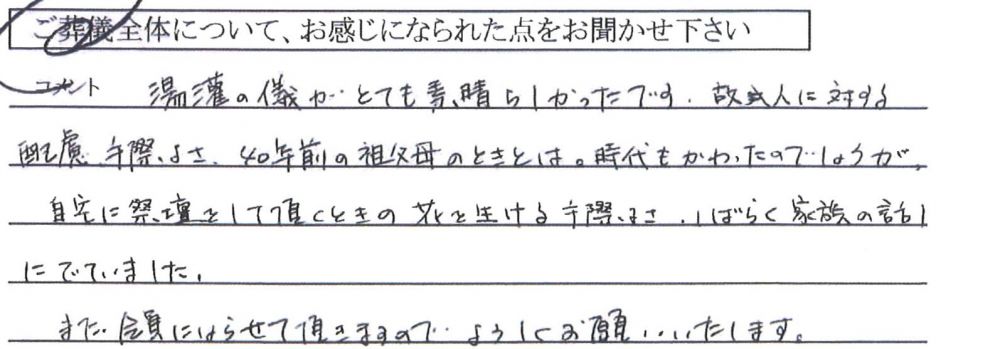 ご葬儀全体について、お感じになられた点をお聞かせ下さい
コメント 湯灌の儀がとても素晴らしかったです。故人に対する
配慮、手際よさ、40年前の祖父母のときとは。時代もかわったのでしょうが、
自宅に祭壇をして頂くときの花を生ける手際よさ、しばらく家族の話し
にでていました。
また会員にならせて頂きますので、よろしくお願いいたします。